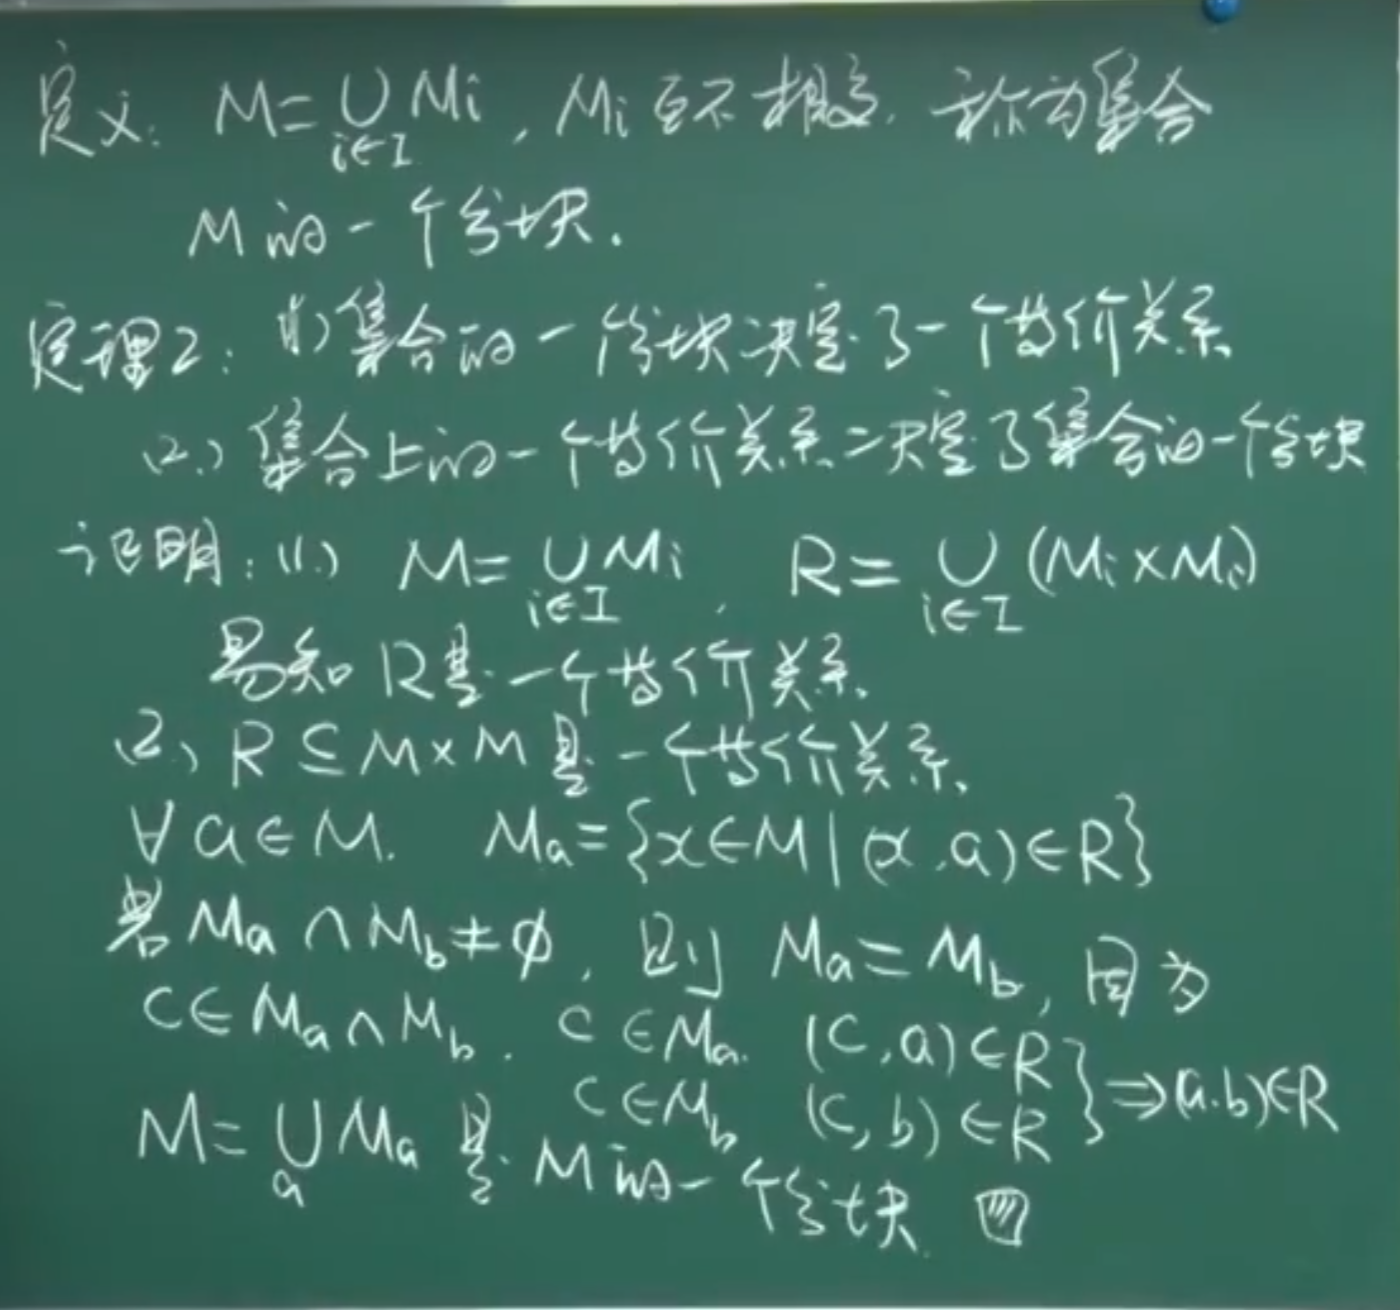 定义: M=∪_{i∈I} Mi, Mi互不相交. 称为集合
M的一个分块.
定理2: (1) 集合的一个分块决定了一个等价关系.
(2.) 集合上的一个等价关系决定了集合的一个分块
证明: (1.) M=∪_{i∈I} Mi, R=∪_{i∈I} (Mi×Mi)
易知R是一个等价关系.
(2.) R⊆M×M是一个等价关系.
∀a∈M. Ma={x∈M|(x,a)∈R}
若Ma∩Mb≠∅, 则Ma=Mb, 因为
C∈Ma∩Mb. C∈Ma. (C,a)∈R
C∈Mb (C,b)∈R } ⇒(a.b)∈R
M=∪_a Ma是M的一个分块.